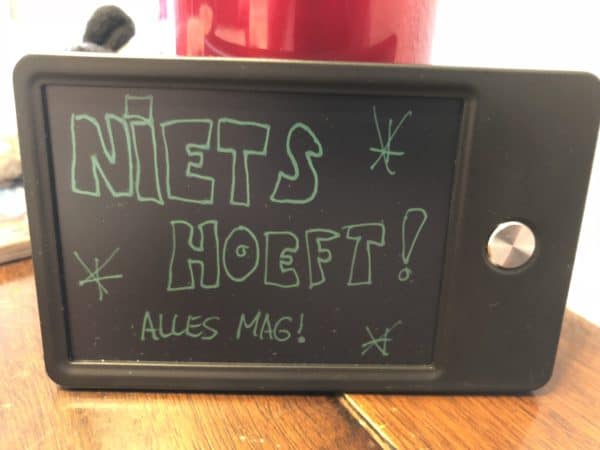 NiETS
HOEFT!
ALLES MAG!